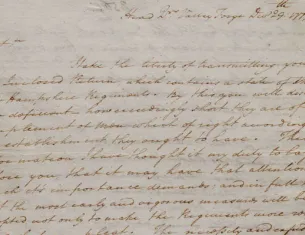 Head Qrs Valley Forge Decr 29th 177
Sir
I take the liberty of transmitting you
Inclosed Return which contains a state of
Hampshire Regiments. By this you will dis
deficient how exceedingly short they are of
plement of men which of right according
establishment they ought to have. Th
formation I have thought it my duty to lay
fore you, that it may have that attention
ch its importance demands, and in full
the most early and vigorous measures will be
pted, not only to make the Regiments more
The necessity and